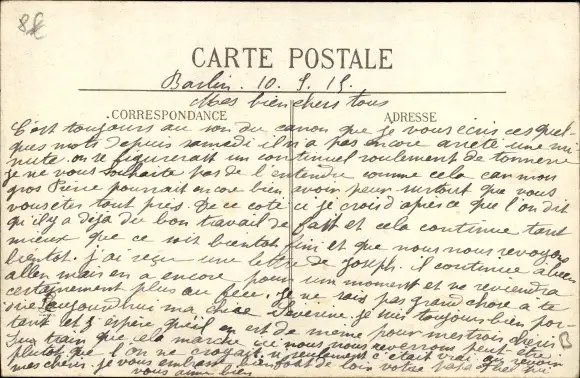 CARTE POSTALE
Barlin. 10. 5. 15.
Mes bien chers tous
CORRESPONDANCE
ADRESSE
C'est toujours au son du canon que je vous écris ces quel-
ques mots depuis samedi il n'a pas encore arreté une mi-
nute on se figurerait un continuel roulement de tonnerre
je ne vous souhaite pas de l'entendre comme cela car mon
gros Pierre pourrait encore bien avoir peur surtout que vous
vous etes tout près. De ce coté ci je crois d'après ce que l'on dit
qu'il y a déja du bon travail de fait et cela continue tant
mieux que ce soit bientot fini et que nous nous revoyons
bientot. j'ai reçu une lettre de Joseph. il continue a bien
aller mais en a encore pour un moment et ne reviendra
certainement plus au feu. Je ne sais pas grand chose a te
dire aujourd'hui ma chère je suis toujours bien por-
tant et j'espère qu'il en est de même pour mes trois chéris
train que cela marche ici nous nous reverrons peut être
plutot que l'on ne croyait si seulement c'était vrai au revoir
mes chéris. je vous embrasse de loin votre papa qui
vous aime bien